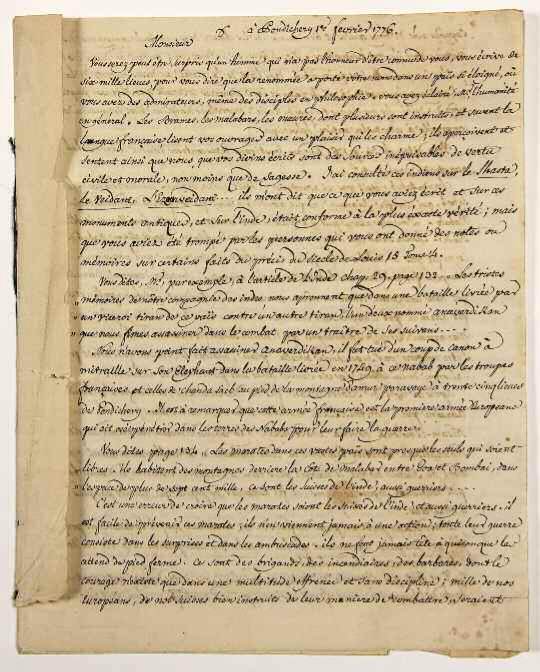 D. à Pondichery 1er fevrier 1776.
Monsieur
Vous serez peut être surpris qu'un homme qui n'a pas l'honneur d'être connu de vous, vous écrive de
six mille lieues pour vous dire que la renommée a porté vôtre nom dans un païs si éloigné, où
vous avez des admirateurs, même des disciples en philosophie. vous avez éclairé l'humanité
en général. Les Brames, les malabars, les maures, dont plusieurs sont instruits, et savent la
langue française lisent vos ouvrages avec un plaisir qui les charme; ils apperçoivent et
sentent ainsi que nous, que vos divins écrits sont des sources inépuisables de vertu
civile et morale, non moins que de sagesse. J'ai consulté ces indiens sur le Shasta,
le Veidam, L'Ezourveidam... ils m'ont dit que ce que vous aviez écrit et sur ces
monuments antiques, et sur l'inde, était conforme à la plus exacte vérité; mais
que vous aviez été trompé par les personnes qui vous ont donné des notes ou
mémoires sur certains faits du précis du siecle de Louis 15 Tom. 4.
Vous dites, Mr, par exemple, à l'article de l'Inde chap. 29, page 132.. Les tristes
mémoires de nôtre compagnie des indes, nous aprennent que dans une bataille livrée par
un viceroi tiran de ce païs contre un autre tiran, l'un deux nommé anaverdikan
que nous fimes assassiner dans le combat par un traitre de ses suivans....
Nous n'avons point fait assassiner anaverdikan, il fut tué d'un coup de canon à
mitraille sur son Elephant dans la bataille livrée en 1749, à ce nabab par les troupes
françaises et celles de chanda saeb au pied de la montagne d'amur paravage à trente cinq lieues
de Pondichery. Il est à remarquer que cette armée française est la premiere armée Europeane
qui ait osé penétrer dans les terres des Nababs pour leur faire la guerre.
Vous dites page 134. Les marates dans ces vastes païs sont presque les seuls qui soient
libres. ils habitent des montagnes derriere la côte de malabar entre Goa et Bombai, dans
l'espace de plus de sept cent mille. ce sont les suisses de l'inde; aussi guerriers....
C'est une erreur de croire que les marates soient les suisses de l'inde; et aussi guerriers. il
est facile de prévenir ces marates; ils n'en viennent jamais à une action; toute leur guerre
consiste dans les surprises et dans les ambuscades. ils ne font jamais tête à quiconque les
attend de pied ferme. ce sont des brigands, des incendiaires, des barbares, dont le
courage n'existe que dans une multitude effrenée et sans discipline; mille de nos
Europeans, de nos suisses bien instruits de leur maniere de combattre, seraient